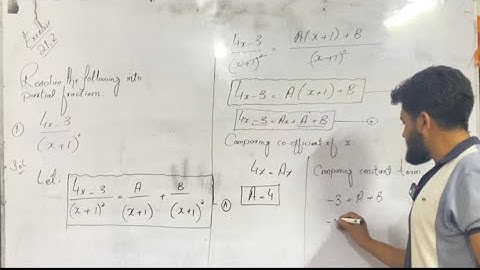 Exercise
21.2
Resolve the following into
partial fractions
① 4x-3
(x+1)²
Sol
Let. 4x-3 / (x+1)² = A / (x+1) + B / (x+1)² Ⓐ
4x-3 / (x+1)² = A(x+1)+B / (x+1)²
4x-3 = A(x+1)+B
4x-3 = Ax+A+B
Comparing co-efficient of x
4x = Ax
A=4
Comparing constant term
-3 = A+B